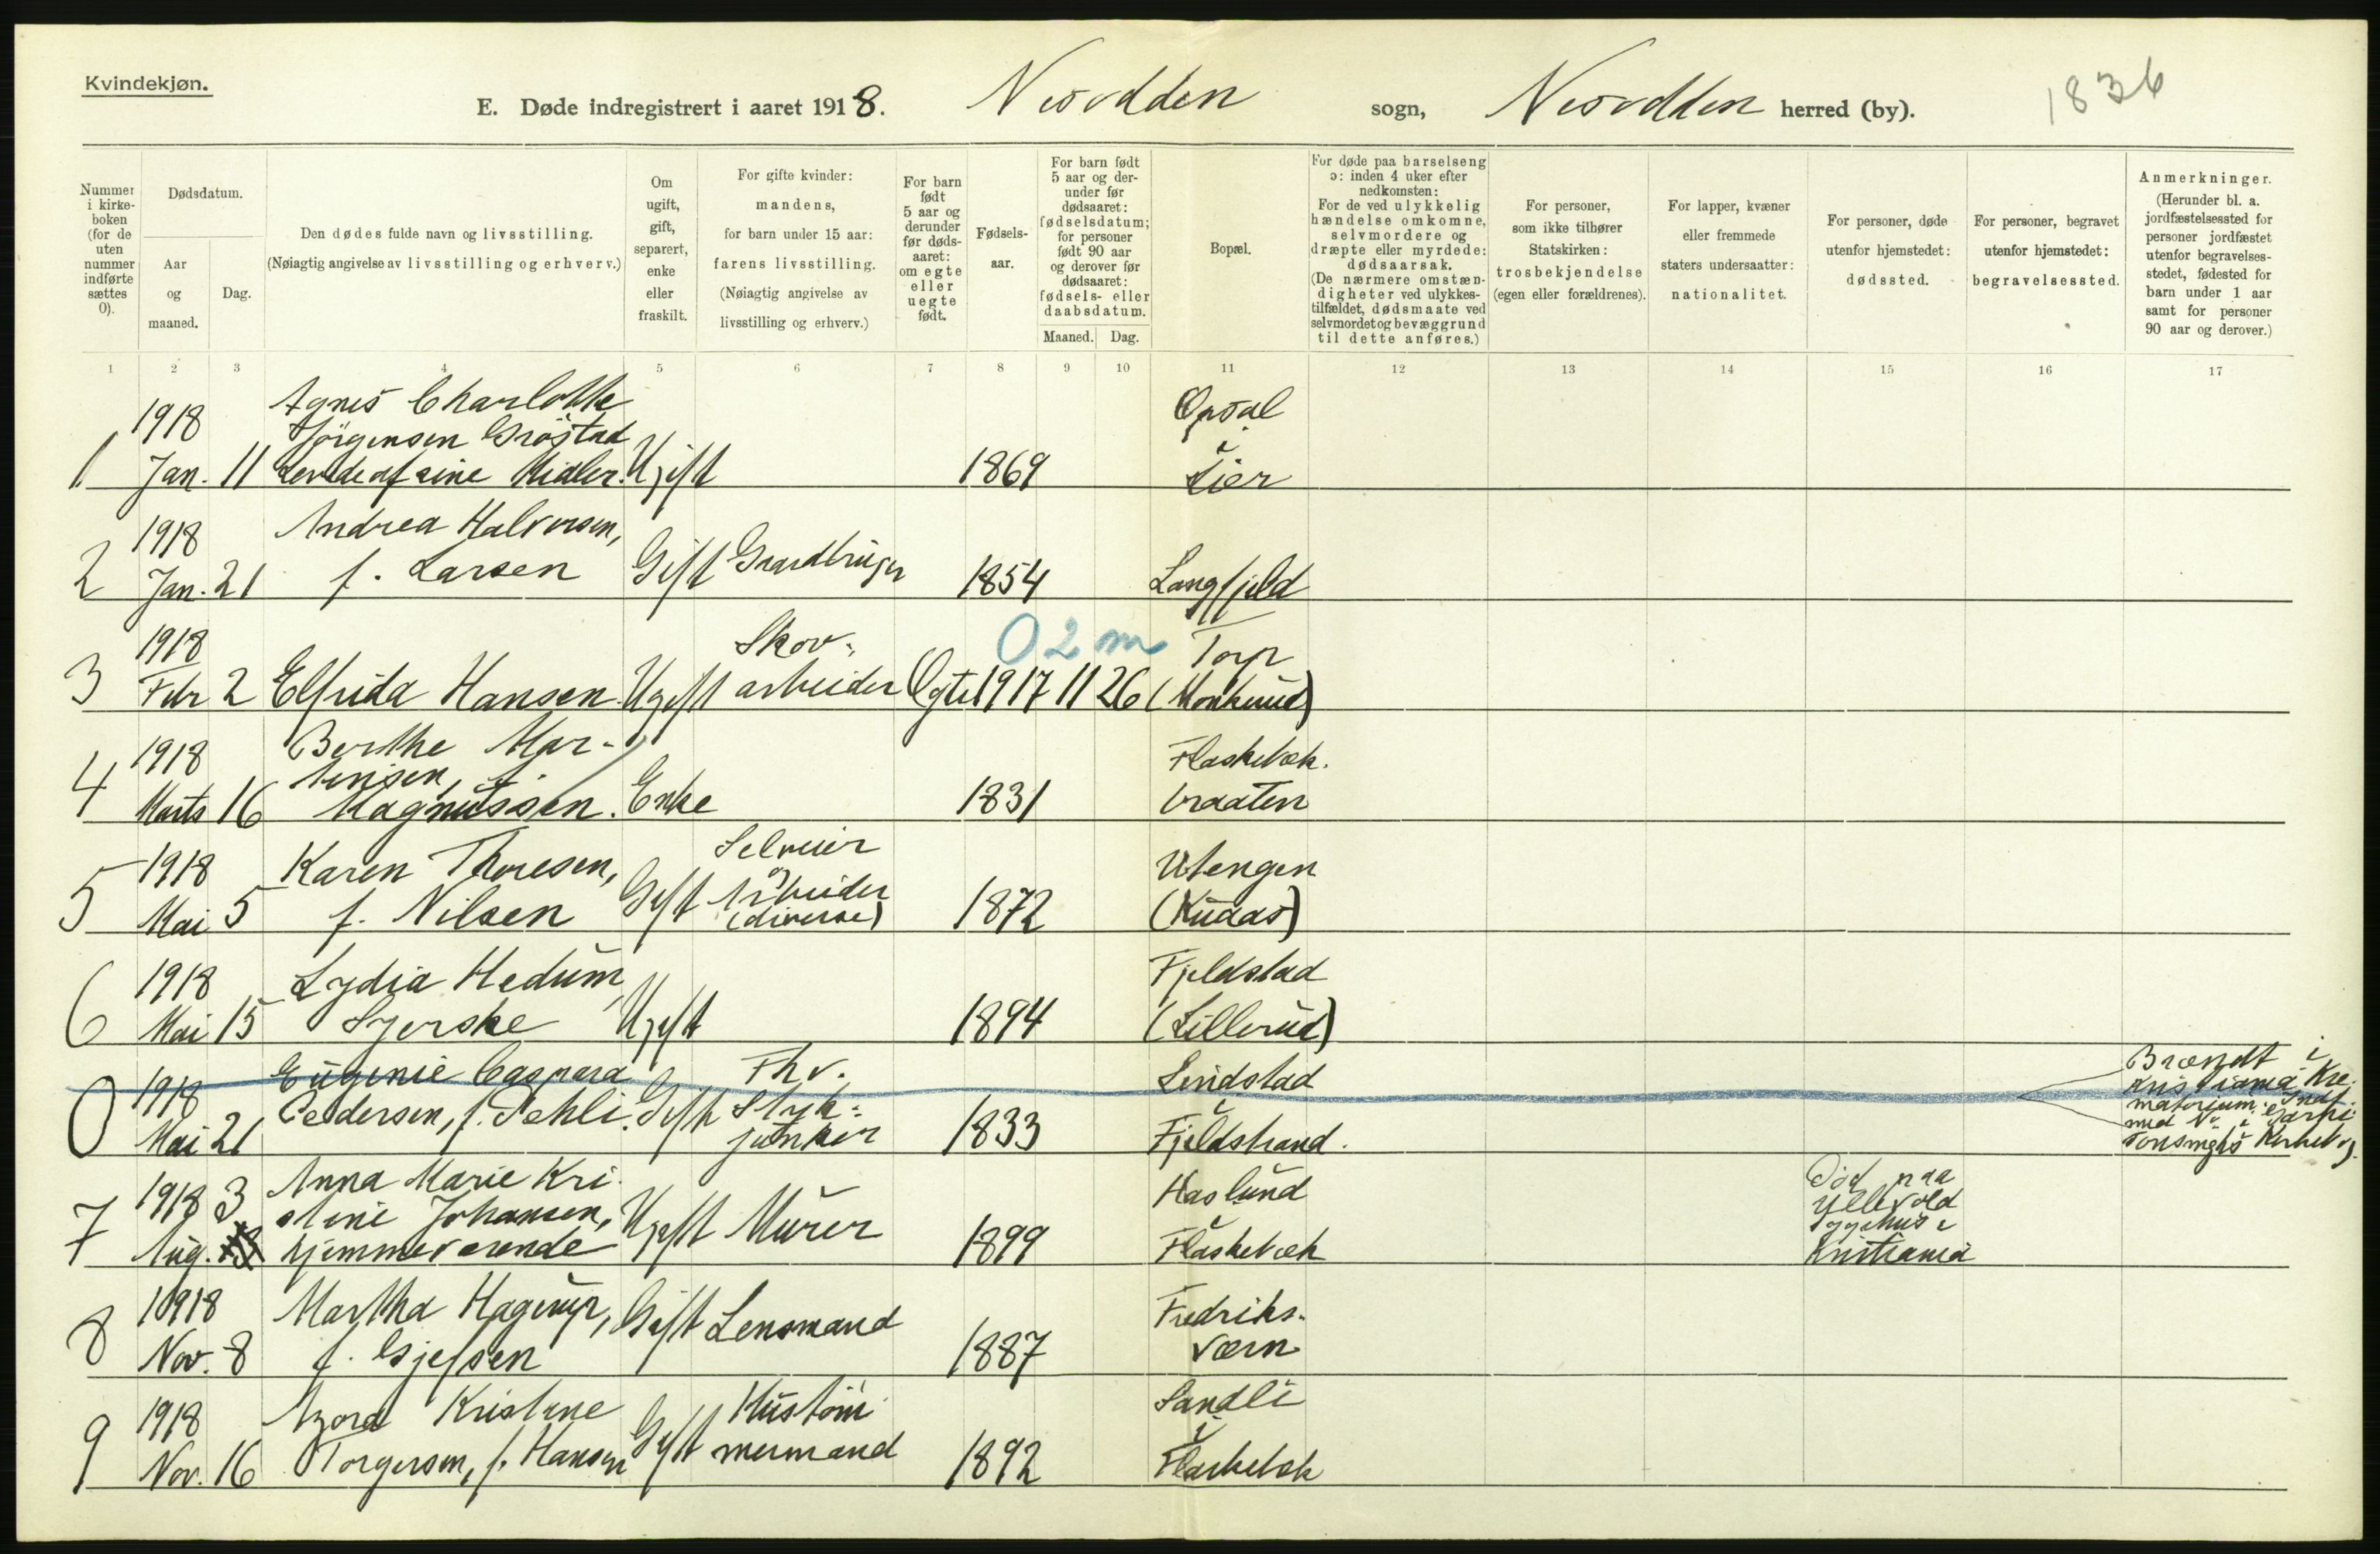 Kvindekjøn.
E. Døde indregistrert i aaret 1918. Nesodden sogn, Nesodden herred (by).
1836
Nummer i kirkeboken (for de uten nummer indførte sættes 0).
Dødsdatum.
Aar og maaned.
Dag.
Den dødes fulde navn og livsstilling.
(Nøiagtig angivelse av livsstilling og erhverv.)
Om ugift, gift, separert, enke eller fraskilt.
For gifte kvinder: mandens, for barn under 15 aar: farens livsstilling.
(Nøiagtig angivelse av livsstilling og erhverv.)
For barn født 5 aar og derunder før dødsaaret: om egte eller uegte født.
Fødselsaar.
For barn født 5 aar og derunder før dødsaaret: fødselsdatum; for personer født 90 aar og derover før dødsaaret: fødsels- eller daabsdatum.
Maaned. Dag.
Bopæl.
For døde paa barselseng ɔ: inden 4 uker efter nedkomsten:
For de ved ulykkelig hændelse omkomne, selvmordere og dræpte eller myrdede: dødsaarsak.
(De nærmere omstændigheter ved ulykkestilfældet, dødsmaate ved selvmordet og bevæggrund til dette anføres.)
For personer, som ikke tilhører Statskirken: trosbekjendelse (egen eller forældrenes).
For lapper, kvæner eller fremmede staters undersaatter: nationalitet.
For personer, døde utenfor hjemstedet: dødssted.
For personer, begravet utenfor hjemstedet: begravelsessted.
Anmerkninger.
(Herunder bl. a. jordfæstelsessted for personer jordfæstet utenfor begravelsesstedet, fødested for barn under 1 aar samt for personer 90 aar og derover.)
1 2 3 4 5 6 7 8 9 10 11 12 13 14 15 16 17
1918 Agnes Charlotte Opsal
Jörgensen Gröstad i
1 Jan. 11 Levde af sine Midler. Ugift 1869 Lier
1918 Andrea Halvorsen,
2 Jan. 21 f. Larsen Gift Gaardbruger 1854 Langfjeld
1918 Skov- 0 2 m Torp
3 Febr 2 Elfrida Hansen. Ugift arbeider Egte 1917 11 26 (Monkerud)
1918 Berthe Mar- Flaskebæk.
tensen, f.
4 Marts 16 Magnussen. Enke 1831 braaten
1918 Karen Thoresen, Selveier Utengen
5 Mai 5 f. Nilsen Gift og Arbeider (diverse) 1872 (Kuaas)
1918 Lydia Hedum, Fjeldstad
6 Mai 15 Syerske Ugift 1894 (Lillerud)
1918 Eugenie Caspara Fhv. Lindstad Brændt i
i Kristiania Kre-
0 Mai 21 Pedersen, f. Pehli. Gift Styk- junker 1833 Fjeldstrand. matorium.
1918 3 Anna Marie Kri- Haslund Död paa
stine Johansen, i Ullevold
7 Aug. hjemmeværende Ugift Murer 1899 Flaskebæk Sygehus i Kristiania
1918 Martha Hagerup, Fredriks-
8 Nov. 8 f. Gjessen Gift Lensmand 1887 værn
1918 Kristine Hustöm- Sandli
i
9 Nov. 16 Torgersen, f. Hansen Gift mermand 1892 Flaskebæk